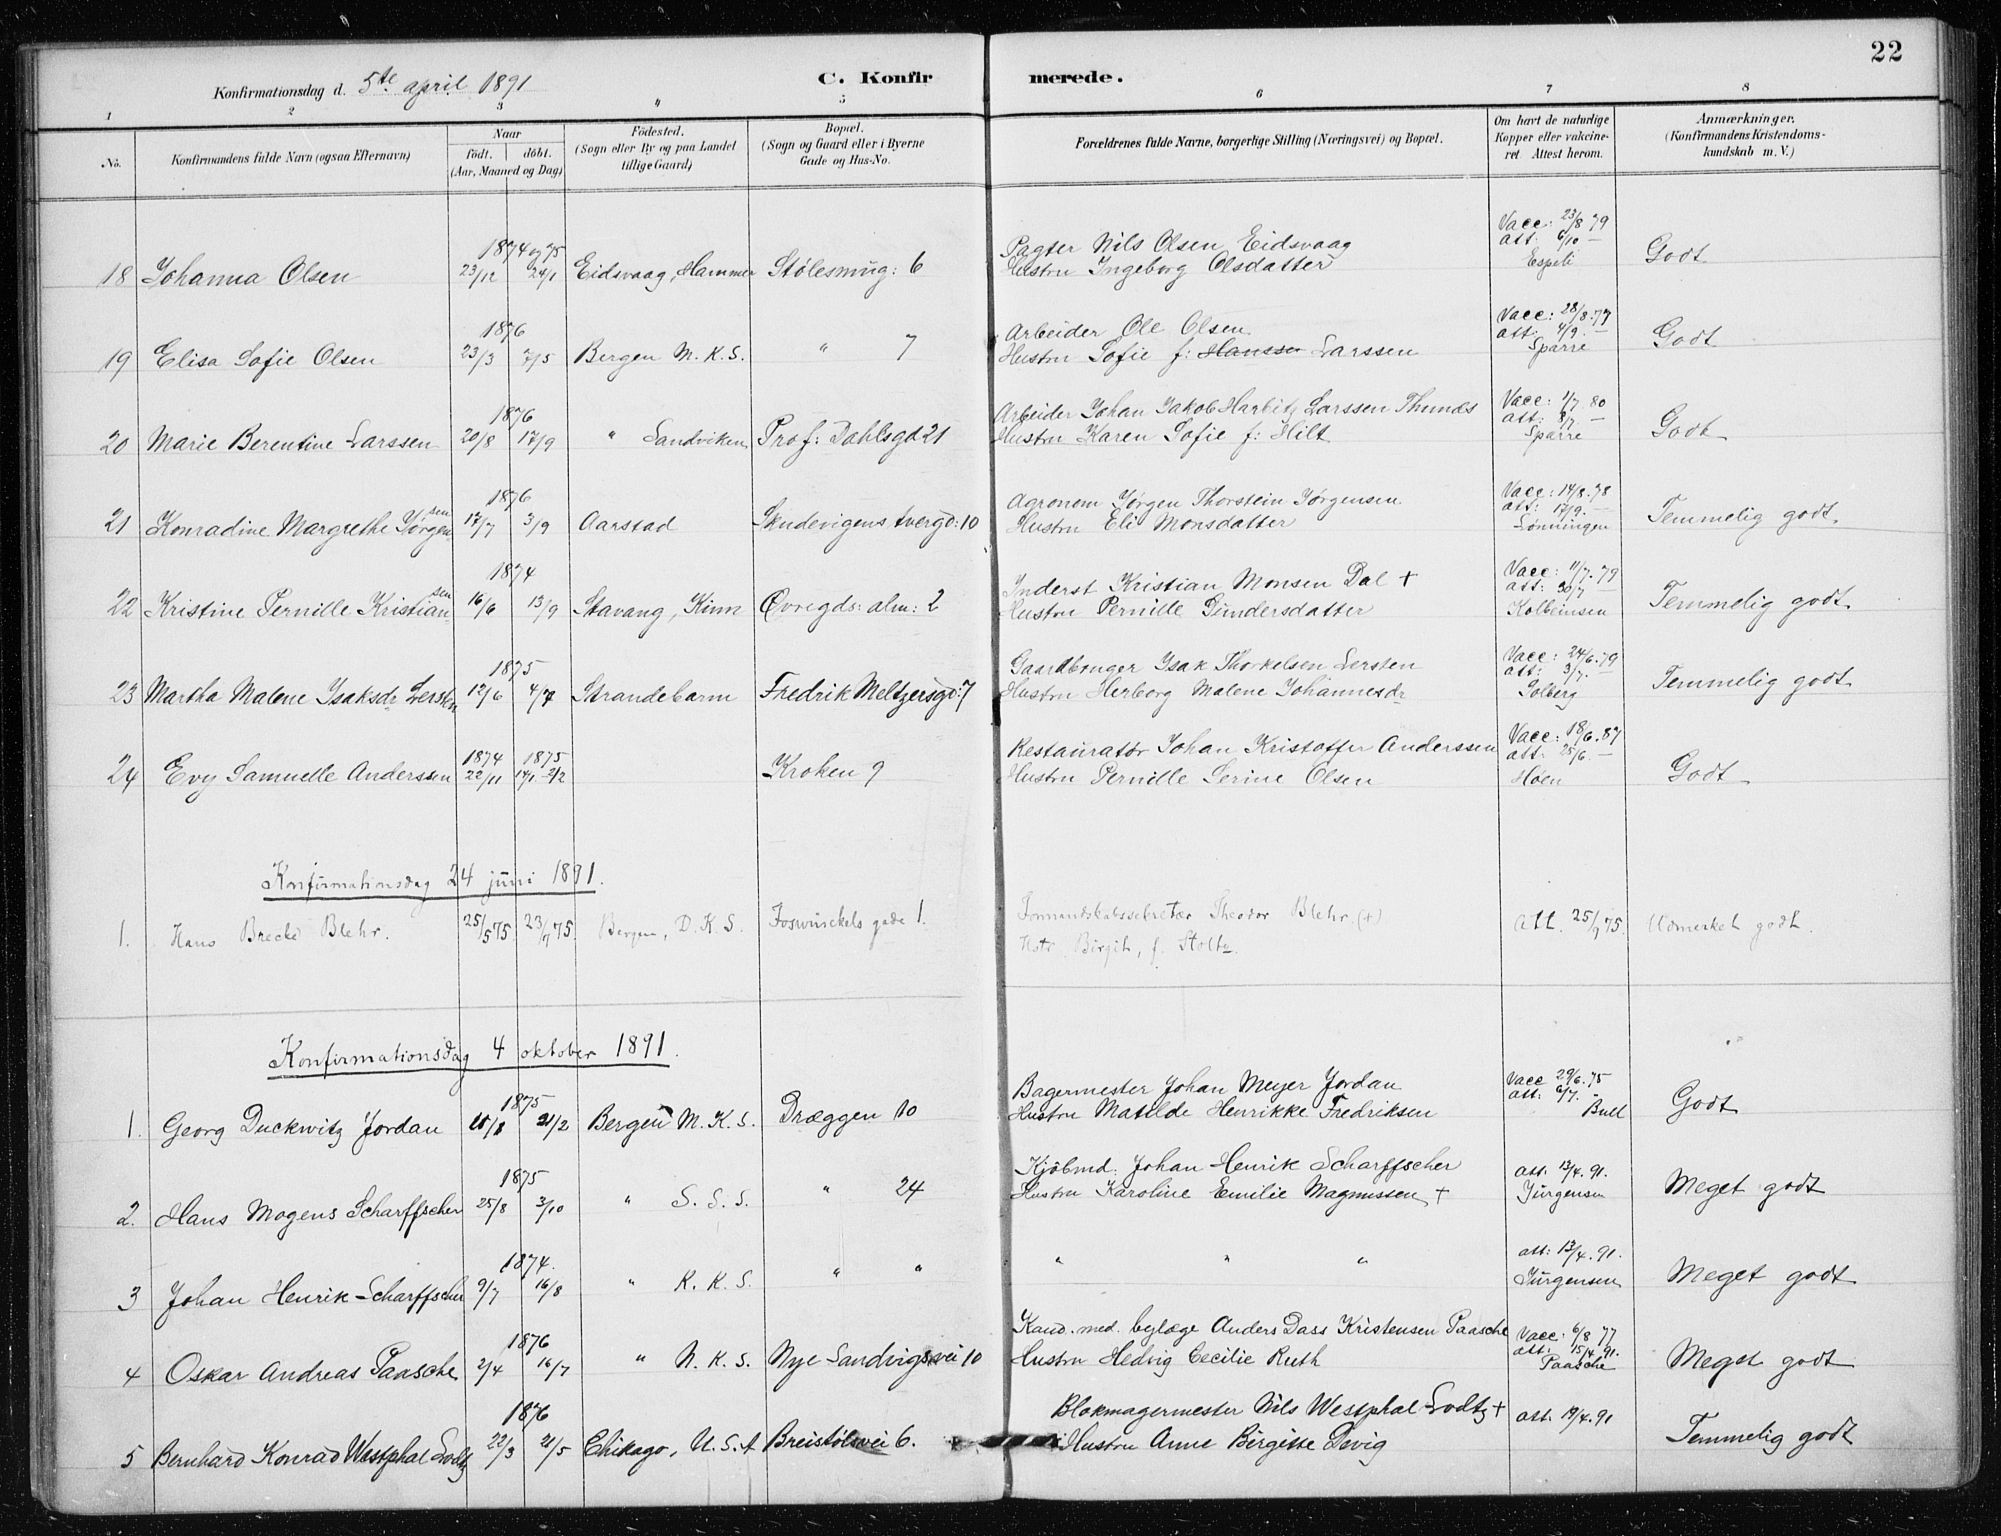 22
Konfirmationsdag d. 5te april 1891
C. Konfirmerede.
1 2 3 " 5 6 7 8
No.
Konfirmandens fulde Navn (ogsaa Efternavn)
Naar
født. døbt.
(Aar, Maaned og Dag)
Fødested.
(Sogn eller By og paa Landet
tillige Gaard)
Bopæl.
(Sogn og Gaard eller i Byerne
Gade og Hus-No.
Forældrenes fulde Navne, borgerlige Stilling (Næringsvei) og Bopæl.
Om havt de naturlige
Kopper eller vakcine-
ret. Attest herom.
Anmærkninger.
(Konfirmandens Kristendoms-
kundskab m. V.)
1874 og 75
18 Johanna Olsen 23/12 24/1 Eidsvaag, Hammer Stølesmug: 6
Pagter Nils Olsen Eidsvaag
Hustru Ingeborg Olsdatter
Vacc: 23/8 79
att: 6/10 —
Espeli
Godt
1876
19 Elisa Sofie Olsen 23/3 7/5 Bergen M. K. S. " 7
Arbeider Ole Olsen
Hustru Sofie f: Hansse Larssen
Vacc: 28/8. 77
att: 4/9. —
Sparre
Godt
1876
20 Marie Berentine Larssen 20/8 17/9 " Sandviken Prof: Dahlsgd 21
Arbeider Johan Jakob Harbitz Larssen Thunæs
Hustru Karen Sofie f: Hilt
Vacc: 1/7. 80
att: 8/7. —
Sparre
Godt
1876
21 Konradine Margrethe Jørgensen 17/7 3/9 Aarstad Skudevigens tvergd: 10
Agronom Jørgen Thorstein Jørgensen
Hustru Eli Monsdatter
Vacc: 14/8. 78
att: 17/9. —
Lønningen
Temmelig godt.
1874
22 Kristine Pernille Kristiansen 16/6 13/9 Stavang, Kinn Øvregds: alm: 2
Inderst Kristian Monsen Dal +
Hustru Pernille Gundersdatter
Vacc: 11/7. 79
att: 30/7 —
Kolbeinsen
Temmelig godt.
1875
23 Martha Malene Isaksdr Lersten 12/6 4/7 Strandebarm Fredrik Meltzersgd: 7
Gaardbruger Isak Thorkelsen Lersten
Hustru Herborg Malene Johannesdr
Vacc: 24/6. 79
att: 3/7. —
Solberg
Temmelig godt
1874 1875
24 Evy Samuelle Anderssen 22/11 17/1 - 2/2 Kroken 9
Restauratør Johan Kristoffer Anderssen
Hustru Pernille Serine Olsen
Vacc: 18/6. 87
att: 25/6. —
Høen
Godt
Konfirmationsdag 24 juni 1891.
1. Hans Brecke Blehr. 25/5 75 23/7 75 Bergen, D. K. S. Foswinckels gade 1.
Formandskabssekretær Theodor Blehr. (+)
Hstr Birgit, f. Stoltz.
Att. 25/9 75.
Udmerket godt.
Konfirmationsdag 4 oktober 1891.
1875
1. Georg Duckwitz Jordan 21/2 Bergen M. K. S. Dræggen 10
Bagermester Johan Meyer Jordan
Hustru Matilde Henrikke Fredriksen
Vacc 29/6. 75
att: 6/7. -
Bull
Godt
1875
2. Hans Mogens Scharffscher 25/8 3/10 " S. S. S. " 24
Kjøbmd. Johan Henrik Scharffscher
Hustru Karoline Emilie Magnussen +
att: 13/4. 91.
Jürgensen
Meget godt
1874.
3 Johan Henrik Scharffscher 9/7 16/8 " K. K. S. " "
" " "
att: 13/4. 91.
Jürgensen
Meget godt
1876
4 Oskar Andreas Paasche 2/4 16/7 " N. K. S. Nye Sandvigsvei 10
Kand. med. bylæge Anders Dass Kristensen Paasche
Hustru Hedvig Cecilie Ruth
Vacc: 6/8 77
att: 15/4 91.
Paasche
Meget godt
1876
5 Bernhard Konrad Westphal Lodtz 22/3 21/5 Chikago, U. S. A Breistølsvei 6.
Blokmagermester Nils Westphal Lodtz +
Hustru Anne Birgitte Devig
att. 19/4. 91
Temmelig godt